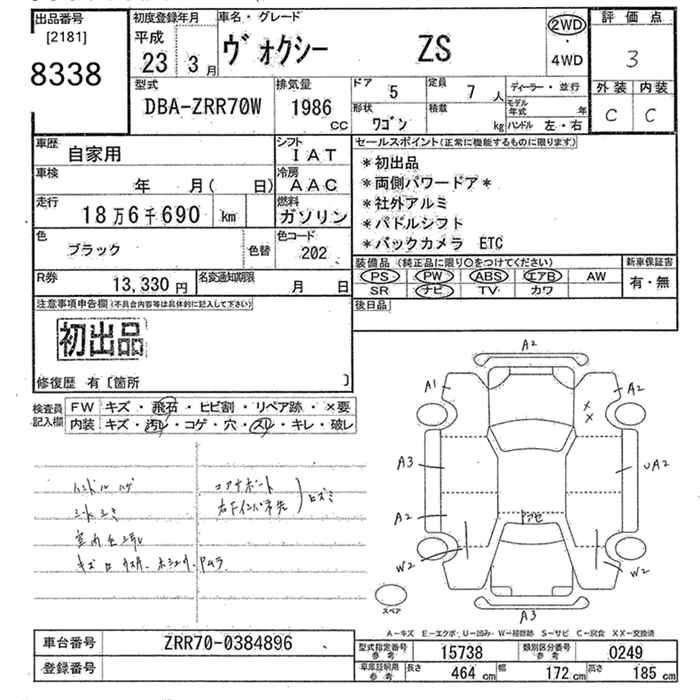 出品番号
[2181]
8338
初度登録年月
平成
23 3 月
車名・グレード
ヴォクシー ZS
2WD
・
4WD
評価点
3
外装 内装
C C
型式
DBA-ZRR70W
排気量
1986
CC
ドア 5
定員 7 人
形状 ワゴン
積載 kg
ディーラー・並行
モデル年式 年
ハンドル 左・右
車歴
自家用
シフト
IAT
車検
年 月( 日)
冷房
AAC
走行
18万6千690 km
燃料
ガソリン
色
ブラック
色替
色コード
202
R券
13,330 円
名変通知期限
月 日
セールスポイント(正常に機能するものに限ります)
*初出品
*両側パワードア*
*社外アルミ
*パドルシフト
*バックカメラ ETC
装備品(純正品に限り○をつけてください)
PS PW ABS エアB AW
SR ナビ TV カワ
新車保証書
有・無
後日品
注意事項申告欄(不具合内容等は具体的に記入して下さい)
初出品
修復歴 有〔箇所 〕
検査員記入欄
FW キズ・飛石・ヒビ割・リペア跡・×要
内装 キズ・汚レ・コゲ・穴・スレ・キレ・破レ
ハンドルハゲ
シートシミ
コアサポート
右下インパネ先
ヒズミ
A2
A1
A2
×
×
A3
UA2
A2
W2
W2
A3
スペア
A-キズ E-エクボ U-凹み W-補修跡 S-サビ C-腐食 XX-交換済
車台番号 ZRR70-0384896
登録番号
型式指定番号 参考 15738
類別区分番号 参考 0249
車庫証明用 参考 長さ 464 cm 幅 172 cm 高さ 185 cm